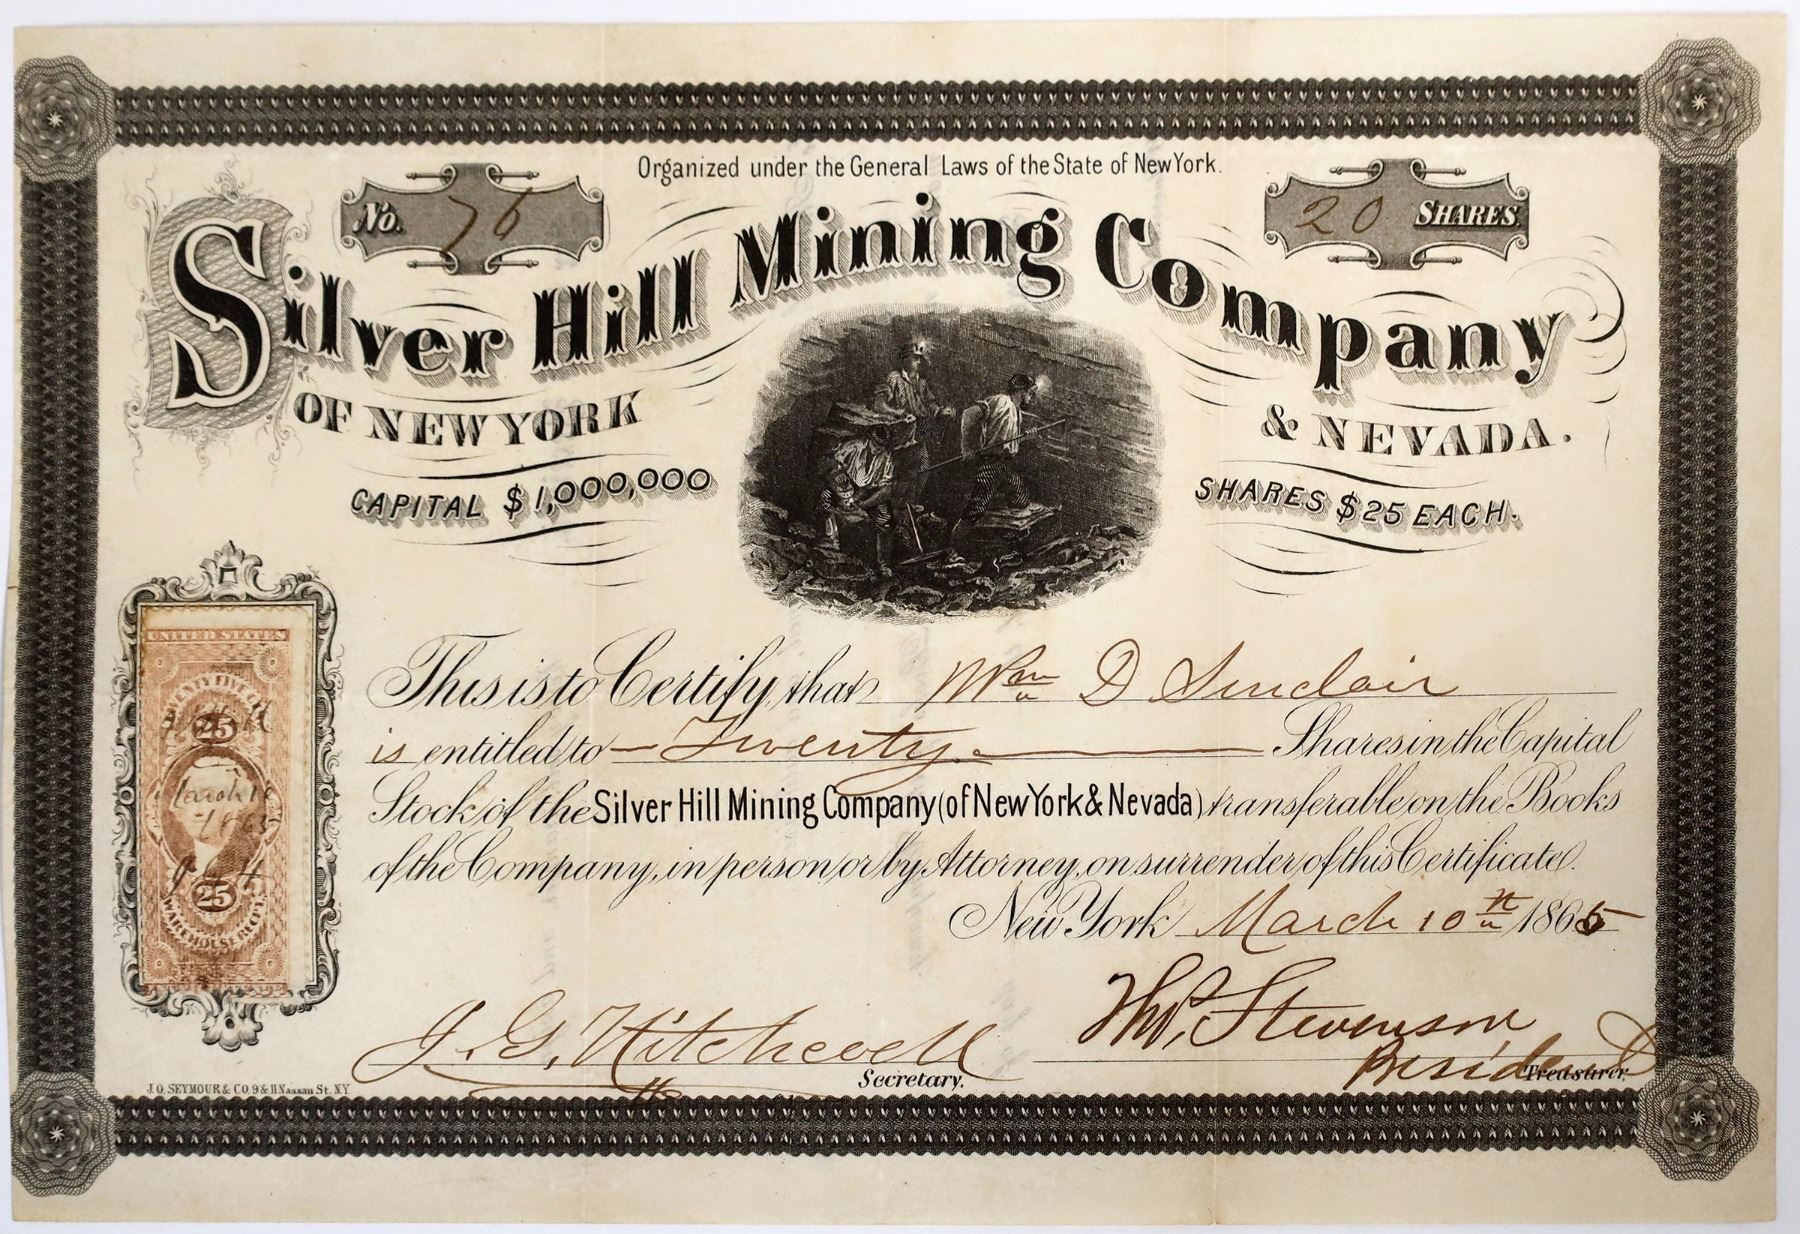 Organized under the General Laws of the State of New York.
No. 76
20 SHARES.
Silver Hill Mining Company
OF NEW YORK
& NEVADA.
CAPITAL $1,000,000
SHARES $25 EACH.
This is to Certify that Wm D Sinclair
is entitled to Twenty Shares in the Capital
Stock of the Silver Hill Mining Company (of New York & Nevada) transferable on the Books
of the Company, in person or by Attorney, on surrender of this Certificate.
New York March 10th 1865
UNITED STATES
TWENTY FIVE
25
March 10
1865
25
WAREHOUSE RECEIPT
J. G. Hitchcock
Secretary.
Thos. Stevenson
President
Treasurer.
J.O. SEYMOUR & CO. 9 & 11 Nassau St. NY